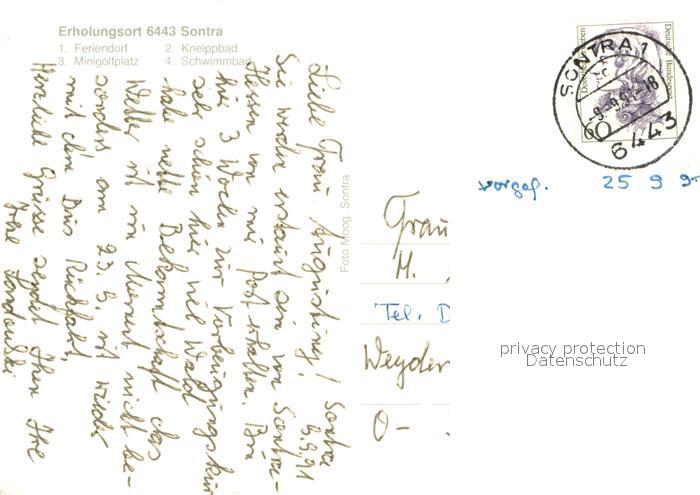 Erholungsort 6443 Sontra
1. Feriendorf 2. Kneippbad
3. Minigolfplatz 4. Schwimmbad
Sontra
9.9.91
Liebe Frau Augusting!
Sie werden erstaunt sein von Sontra-
Hessen von mir Post erhalten. Bin
hier 3 Wochen zur Vorbeugungskur
sehr schön hier viel Wald
habe nette Bekanntschaft das
Wetter ist im Moment nicht be-
sonders am 23.9. ist wieder
mit dem Bus Rückfahrt,
Herzliche Grüsse sendet Ihnen Ihre
Foto Moog, Sontra
Deutsche Bundespost
60
SONTRA 1
-9.-9.91-18
6443
vorgef. 25 9 9
Frau
H.
Tel. D
Weyder
O-
privacy protection
Datenschutz